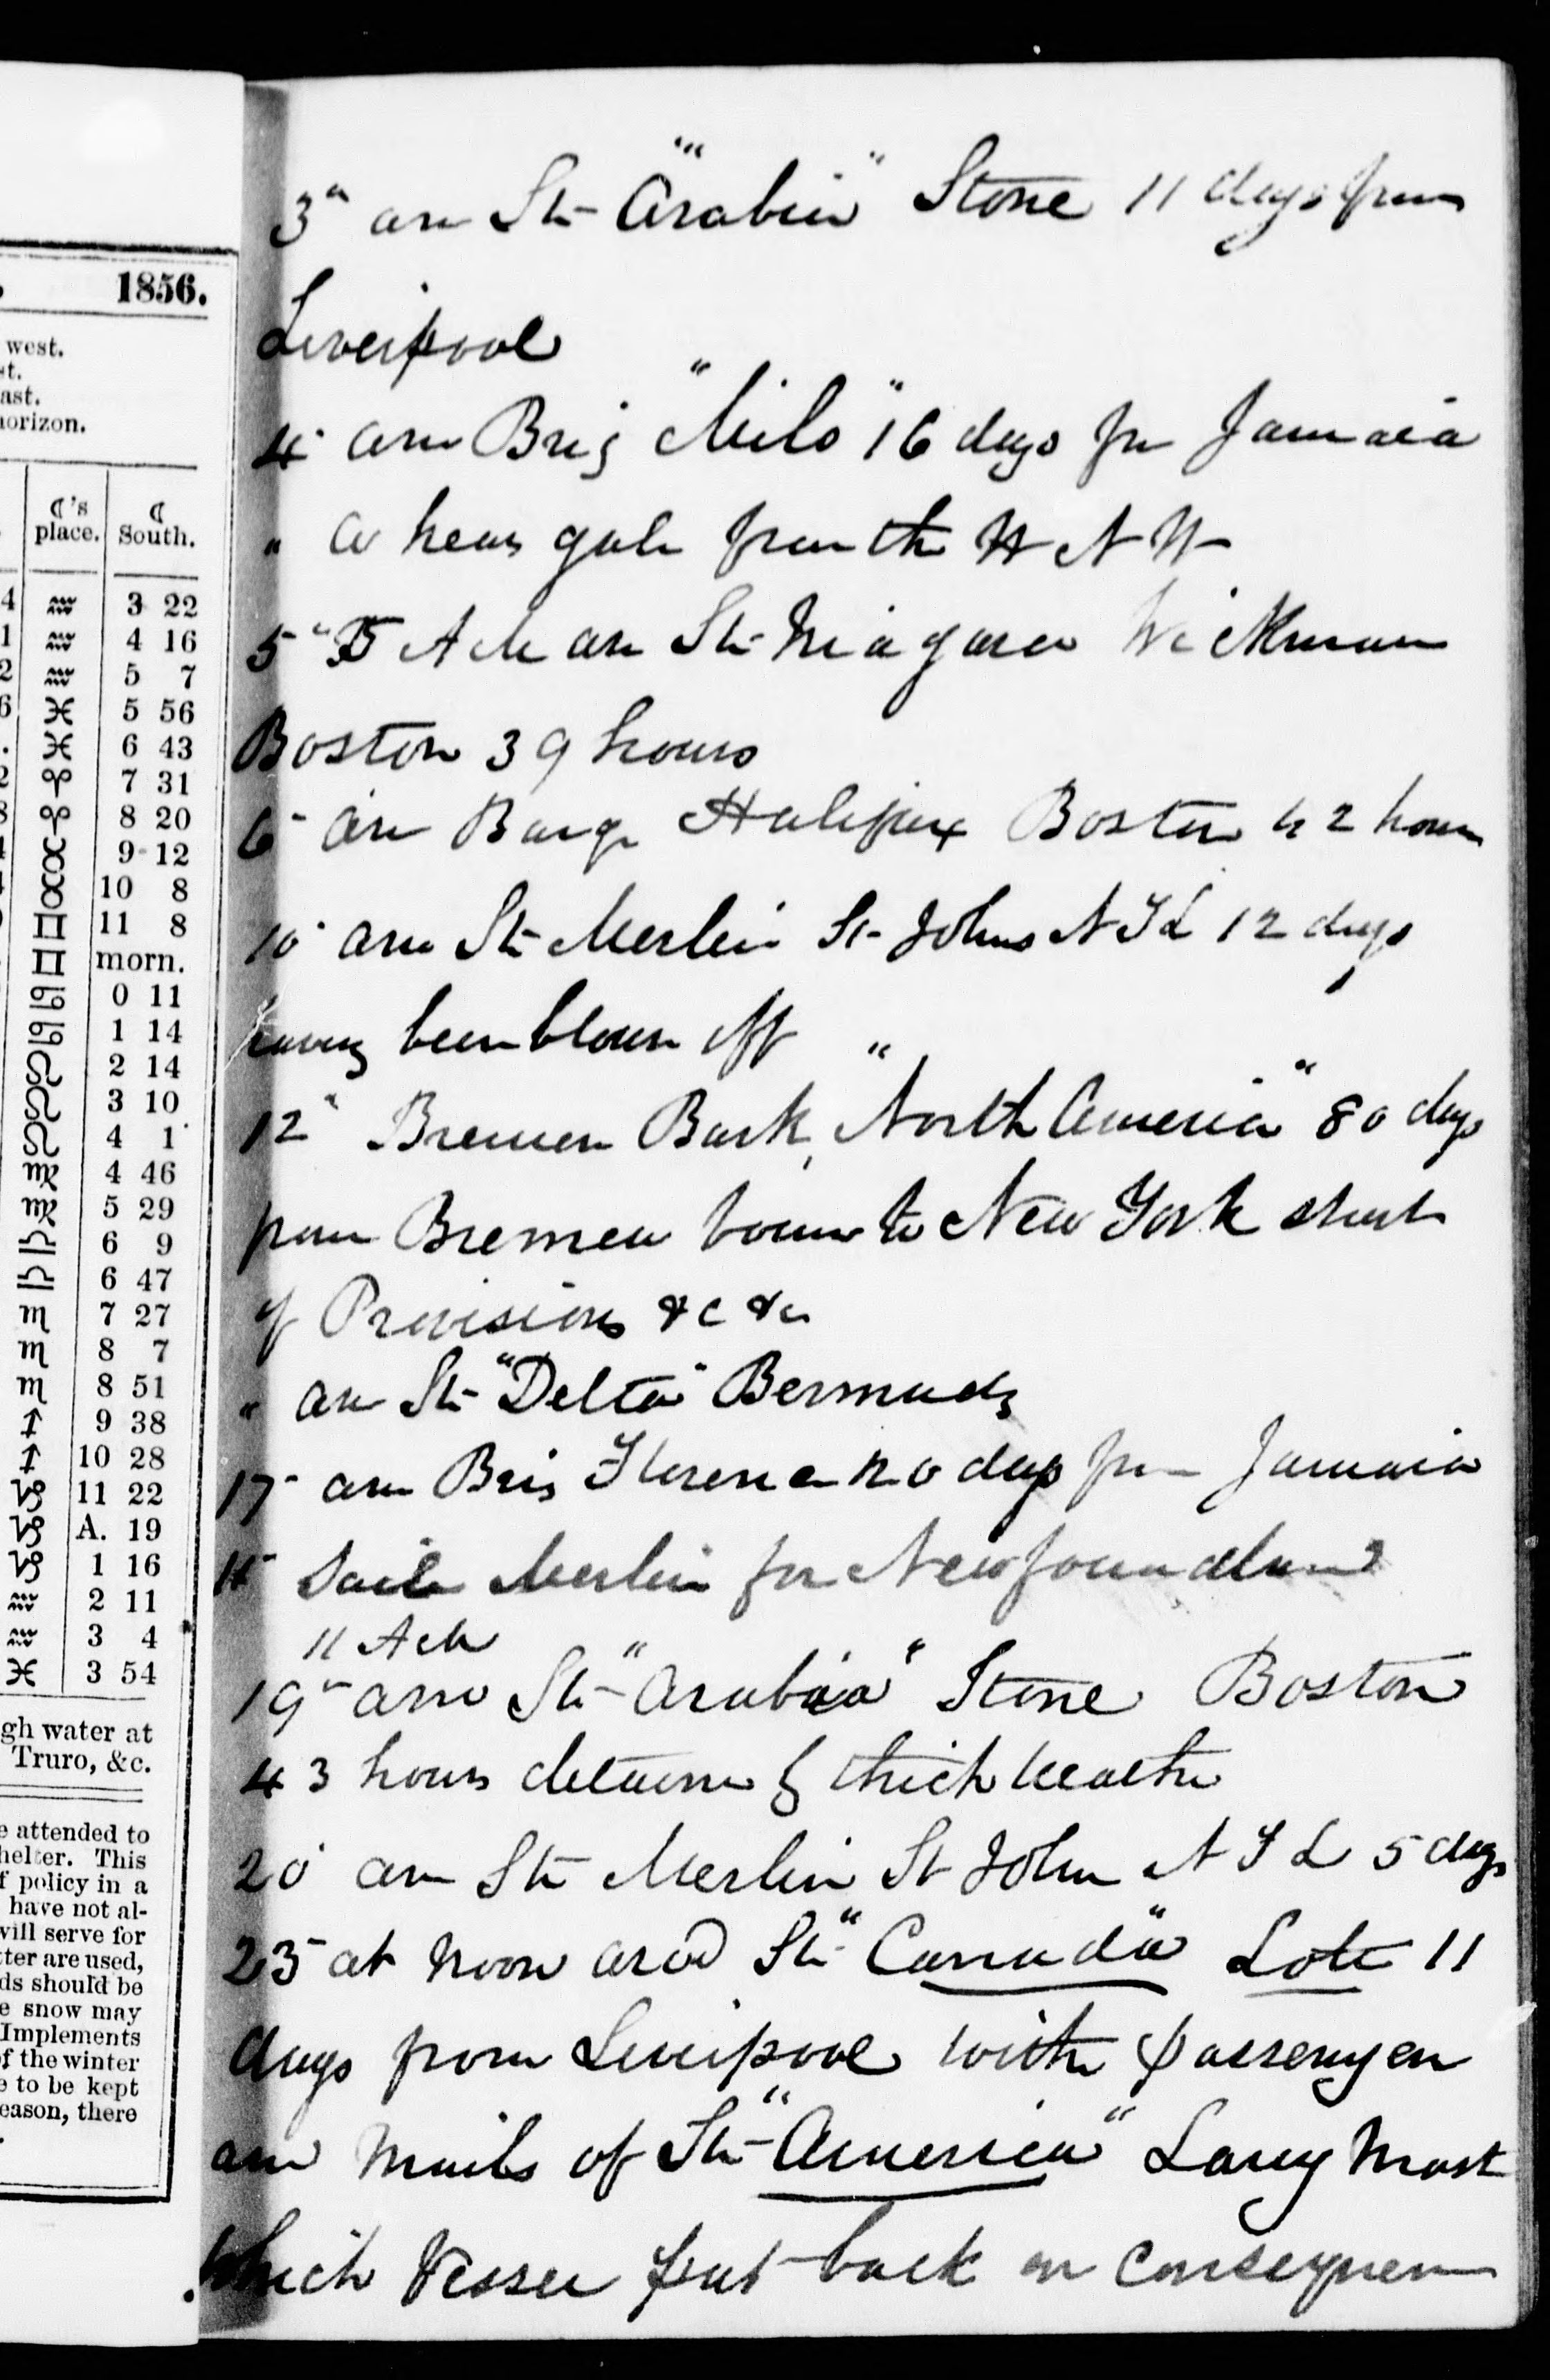 1856.
west.
st.
ast.
horizon.
☾'s place. ☾ South.
4 ♒ 3 22
1 ♒ 4 16
2 ♒ 5 7
6 ♓ 5 56
. ♓ 6 43
2 ♈ 7 31
8 ♈ 8 20
♉ 9 12
♉ 10 8
♊ 11 8
♊ morn.
♋ 0 11
♋ 1 14
♌ 2 14
♌ 3 10
♌ 4 1
♍ 4 46
♍ 5 29
♎ 6 9
♎ 6 47
♏ 7 27
♏ 8 7
♏ 8 51
♐ 9 38
♐ 10 28
♑ 11 22
♑ A. 19
♑ 1 16
♒ 2 11
♒ 3 4
♓ 3 54
gh water at
Truro, &c.
e attended to
helter. This
f policy in a
have not al-
will serve for
tter are used,
ds should be
e snow may
Implements
f the winter
e to be kept
eason, there
3" arr Str "Arabia" Stone 11 days from
Liverpool
4 arr Brig "Milo" 16 days fr Jamaica
" a heavy gale from the W N W
5 " 5 A M arr Str Niagara Wickman
Boston 39 hours
6 arr Barqe Halifax Boston 42 hours
10 arr Str Merlin St Johns N F L 12 days
having been blown off
12" Bremen Bark "North America" 80 days
from Bremen bound to New York short
of Provisions &c &c
" arr Str "Delta" Bermuda
17 arr Brig Florence 20 days fr Jamaica
Saild Merlin for Newfoundland
11 A M
19 arrd Str "Arabia" Stone Boston
43 hours detained by thick weather
20 arr Str Merlin St John N F L 5 days
23 at Noon arrd Str "Canada" 11
days from Liverpool with passengers
and Mails of Str "America" Lang Mast
Which Vessel put back in consequence